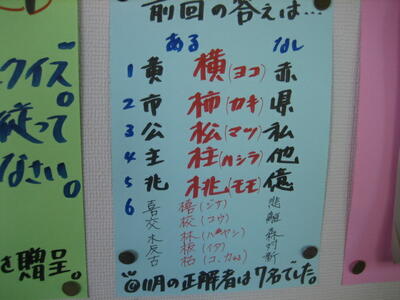 前回の答えは…
ある なし
1 黄 横(ヨコ) 赤
2 市 柿(カキ) 県
3 公 松(マツ) 私
4 主 柱(ハシラ) 他
5 兆 桃(モモ) 億
6 喜
交 校(コウ)
木 林(ハヤシ) 森
反 板(イタ) 対
古 枯 新
11月の正解者は7名でした。
クイズ。
従って
なさい。
さ贈呈。